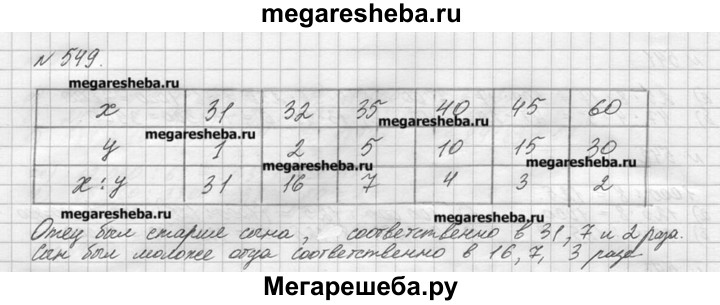 megaresheba.ru
№ 549.
megaresheba.ru
x 31 32 35 40 45 60
megaresheba.ru
y 1 2 5 10 15 30
megaresheba.ru
megaresheba.ru
x : y 31 16 7 4 3 2
megaresheba.ru
megaresheba.ru
Отец был старше сына, соответственно в 31, 7 и 2 раза.
Сын был моложе отца соответственно в 16, 7, 3 раза
Мегарешеба.ру